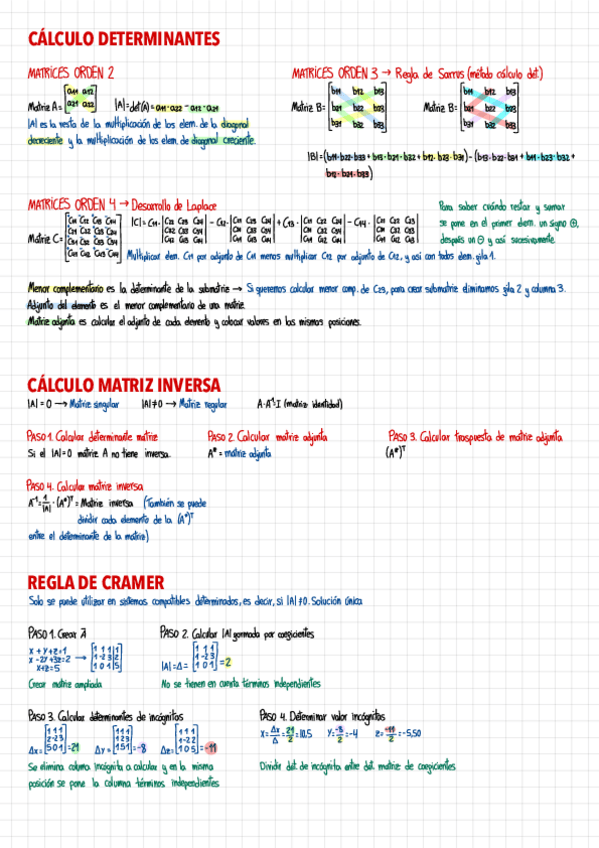 CÁLCULO DETERMINANTES
MATRICES ORDEN 2
Matriz A= [a11 a12
a21 a22]
|A|=det(A)= a11·a22 − a12·a21
|A| es la resta de la multiplicación de los elem. de la diagonal
decreciente y la multiplicación de los elem. de diagonal creciente.
MATRICES ORDEN 3 → Regla de Sarrus (método cálculo det.)
Matriz B= [b11 b12 b13
b21 b22 b23
b31 b32 b33]
Matriz B= [b11 b12 b13
b21 b22 b23
b31 b32 b33]
|B|=(b11·b22·b33 + b13·b21·b32 + b12·b23·b31) − (b13·b22·b31 + b11·b23·b32 +
b12·b21·b33)
MATRICES ORDEN 4 → Desarrollo de Laplace
Matriz C=
|C|= C11·
Para saber cuándo restar y sumar
se pone en el primer elem. un signo ⊕,
después un ⊖ y así sucesivamente.
Multiplicar elem. C11 por adjunto de C11 menos multiplicar C12 por adjunto de C12, y así con todos elem. fila 1.
Menor complementario es la determinante de la submatriz → Si queremos calcular menor comp. de C23, para crear submatriz eliminamos fila 2 y columna 3.
Adjunto del elemento es el menor complementario de una matriz.
Matriz adjunta es calcular el adjunto de cada elemento y colocar valores en las mismas posiciones.
CÁLCULO MATRIZ INVERSA
|A| = 0 → Matriz singular |A|≠0 → Matriz regular A·A⁻¹=I (matriz identidad)
PASO 1. Calcular determinante matriz
Si el |A|=0 matriz A no tiene inversa.
PASO 2. Calcular matriz adjunta
A* = matriz adjunta
PASO 3. Calcular traspuesta de matriz adjunta
(A*)ᵀ
PASO 4. Calcular matriz inversa
A⁻¹= 1/|A| · (A*)ᵀ = Matriz inversa (También se puede
dividir cada elemento de la (A*)ᵀ
entre el determinante de la matriz)
REGLA DE CRAMER
Solo se puede utilizar en sistemas compatibles determinados, es decir, si |A|≠0. Solución única
PASO 1. Crear Ā
x + y + z = 1
x - 2y + 3z = 2
x + z = 5
→ [1 1 1|1
1 -2 3|2
1 0 1|5]
Crear matriz ampliada
PASO 2. Calcular |A| formada por coeficientes
|A| = Δ = [1 1 1
1 -2 3
1 0 1] = 2
No se tienen en cuenta términos independientes
PASO 3. Calcular determinantes de incógnitas
Δx= [1 1 1
2 -2 3
5 0 1] = 21
Δy= [1 1 1
1 2 3
1 5 1] = -8
Δz= [1 1 1
1 -2 2
1 0 5] = -11
Se elimina columna incógnita a calcular y en la misma
posición se pone la columna términos independientes
PASO 4. Determinar valor incógnitas
X= Δx/Δ = 21/2 = 10.5 Y= -8/2 = -4 z= -11/2 = -5,50
Dividir det. de incógnita entre det. matriz de coeficientes